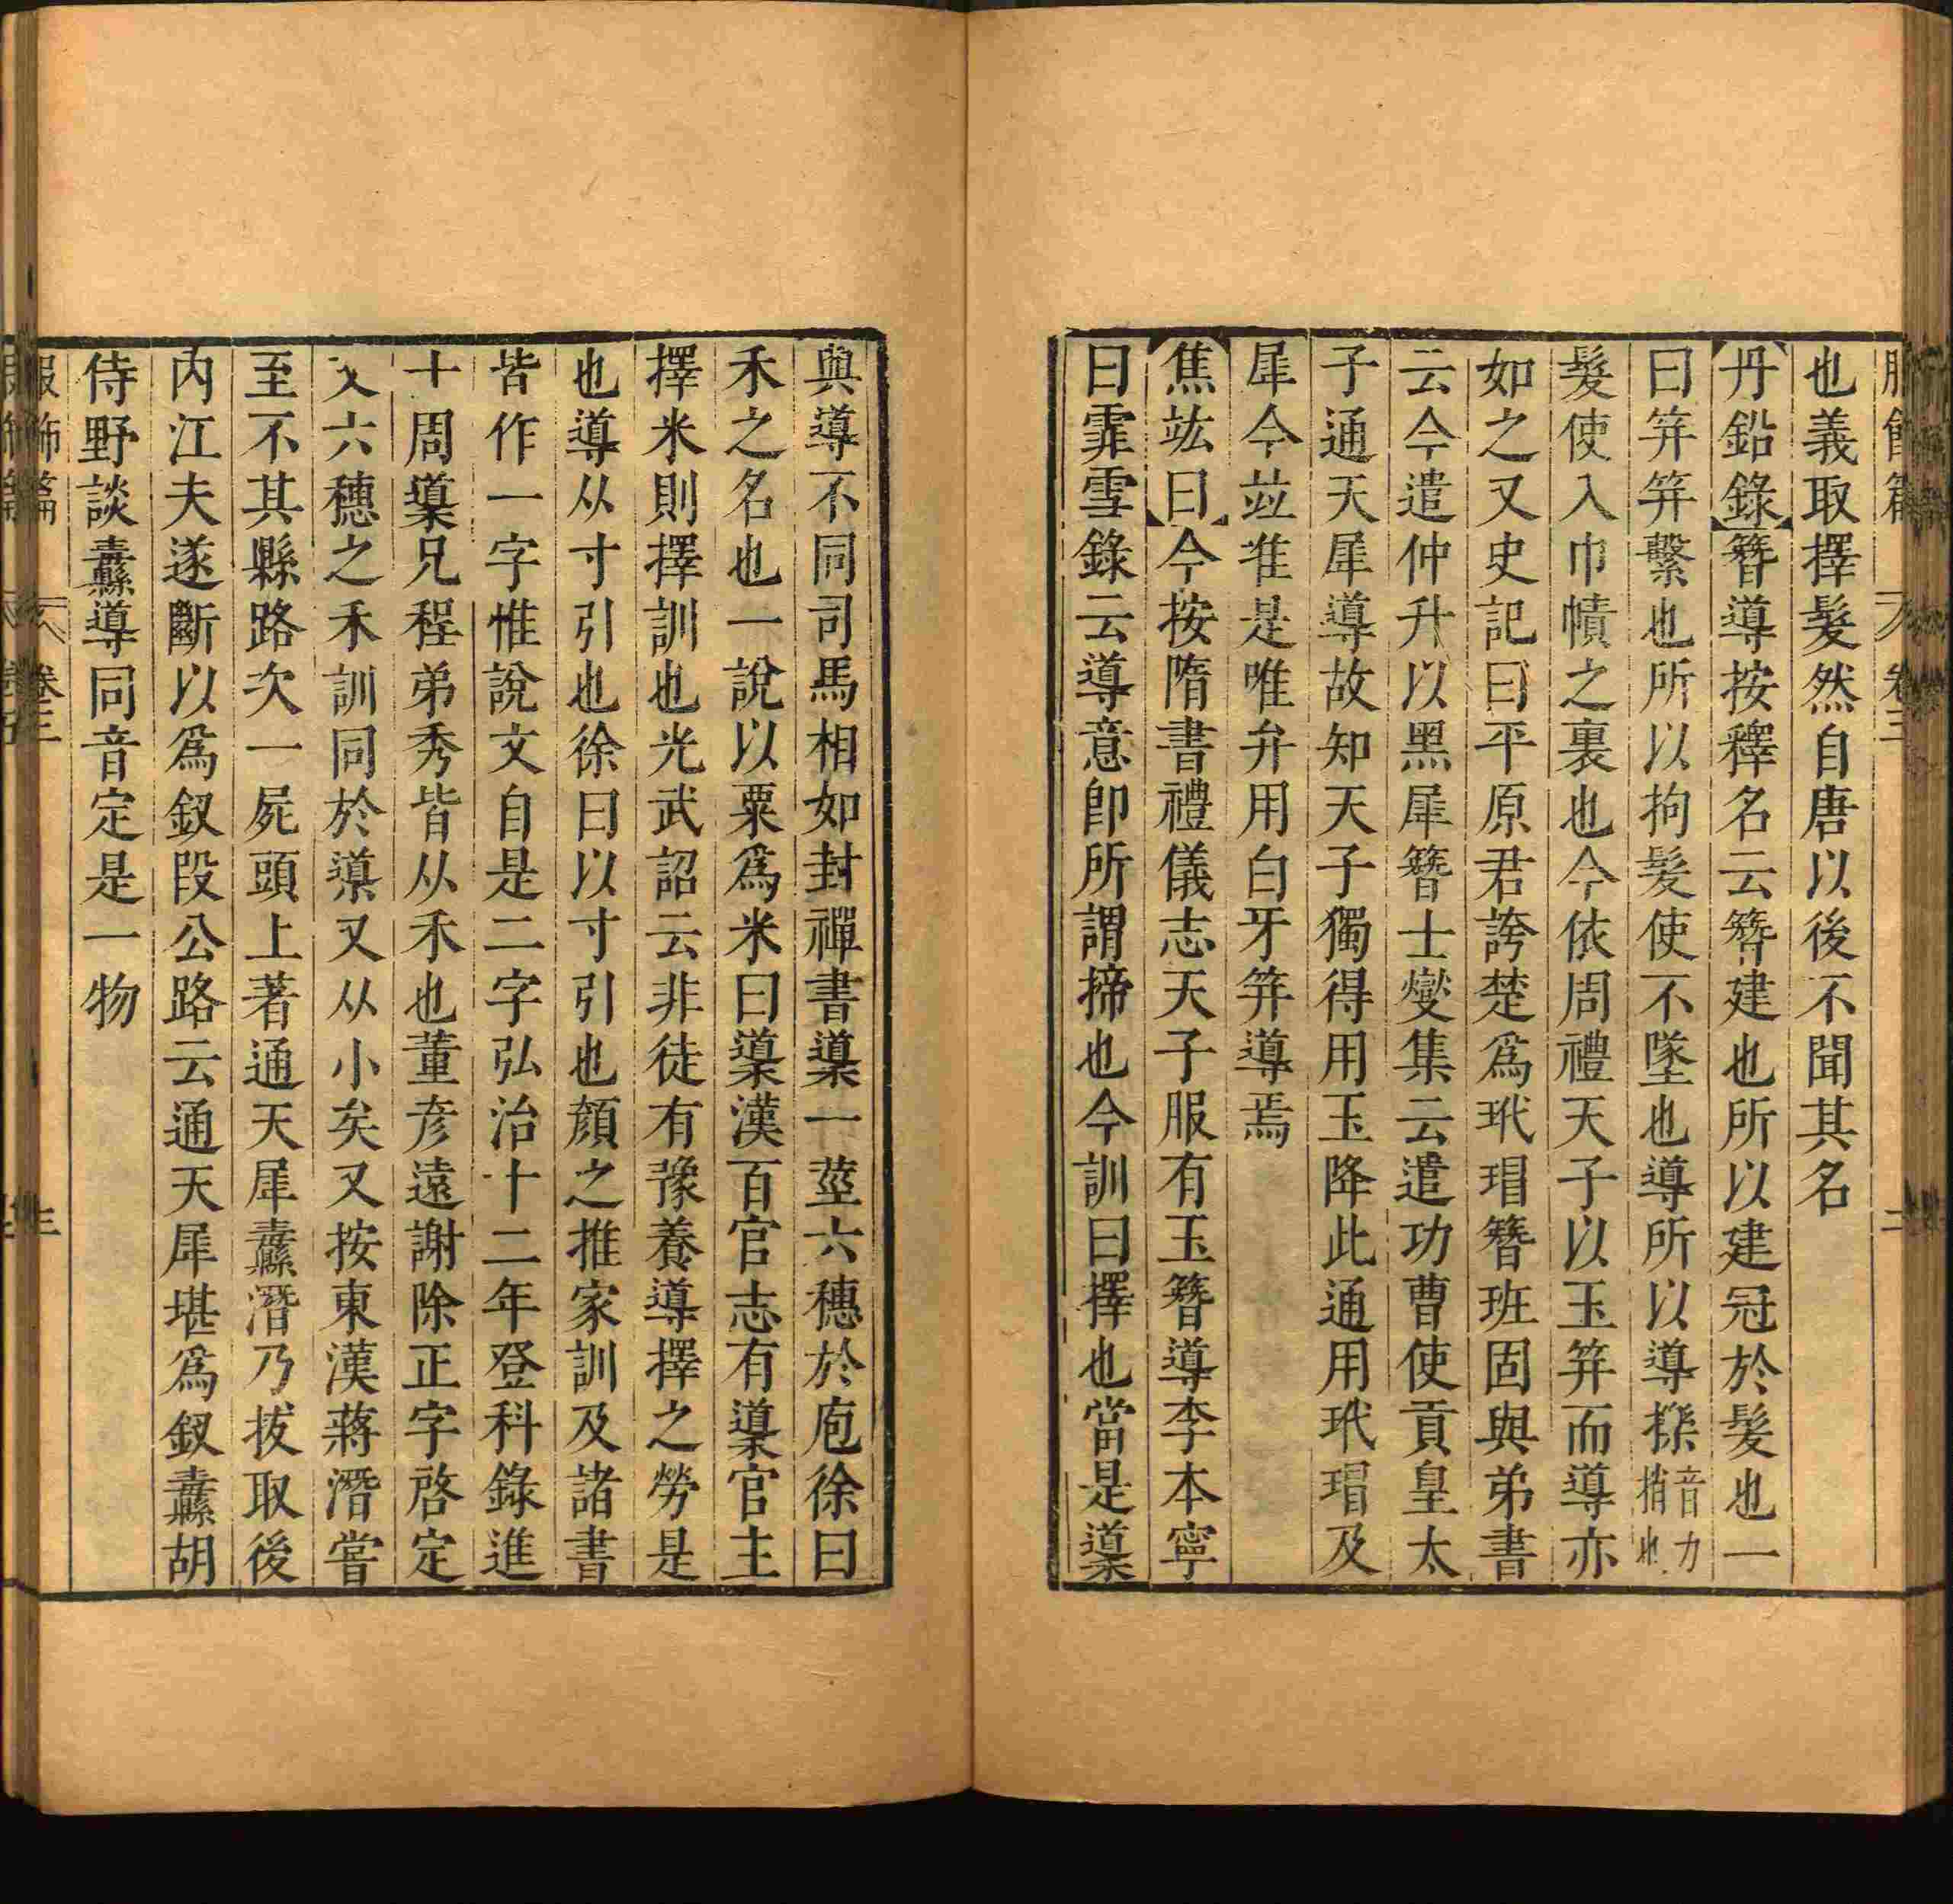 服飾篇 卷三 二
也義取擇髮然自唐以後不聞其名
丹鉛錄簪導按釋名云簪建也所以建冠於髮也一
曰笄笄繫也所以拘髮使不墜也導所以導櫟音力捎也
髮使入巾幘之裏也今依周禮天子以玉笄而導亦
如之又史記曰平原君誇楚為玳瑁簪班固與弟書
云今遣仲升以黑犀簪士燮集云遣功曹使貢皇太
子通天犀導故知天子獨得用玉降此通用玳瑁及
犀今竝准是唯弁用白牙笄導焉
焦竑曰今按隋書禮儀志天子服有玉簪導李本寧
曰霏雪錄云導意卽所謂揥也今訓曰擇也當是䆃
與導不同司馬相如封禪書䆃一莖六穗於庖徐曰
禾之名也一說以粟爲米曰䆃漢百官志有䆃官主
擇米則擇訓也光武詔云非徒有豫養導擇之勞是
也導从寸引也徐曰以寸引也顏之推家訓及諸書
皆作一字惟說文自是二字弘治十二年登科錄進
十周䆃兄程弟秀皆从禾也董彥遠謝除正字啓定
文六穗之禾訓同於導又从小矣又按東漢蔣潛嘗
至不其縣路次一屍頭上著通天犀纛潛乃拔取後
內江夫遂斷以爲釵段公路云通天犀堪爲釵纛胡
侍野談纛導同音定是一物
服飾篇 卷三 三